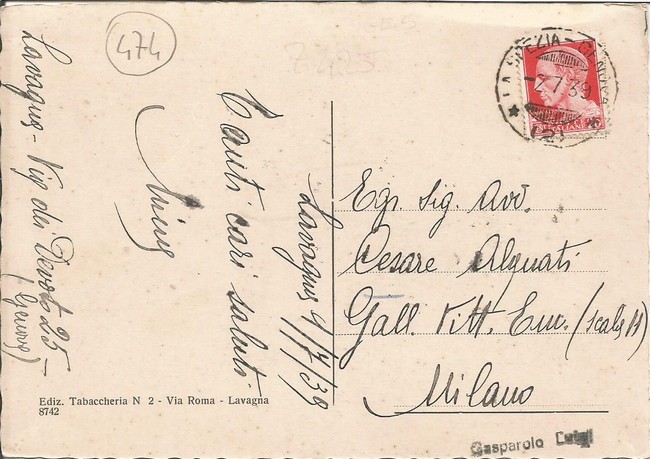 474
Lavagna - Via dei Devoto 25 -
(Genova)
Tanti cari saluti
Lavagna 1/7/39
LA SPEZIA - GENOVA
2.7.39
Egr. Sig. Avv.
Cesare Alquati
Gall. Vitt. Em. (scala H)
Milano
Ediz. Tabaccheria N 2 - Via Roma - Lavagna
8742
Gasparolo Luigi